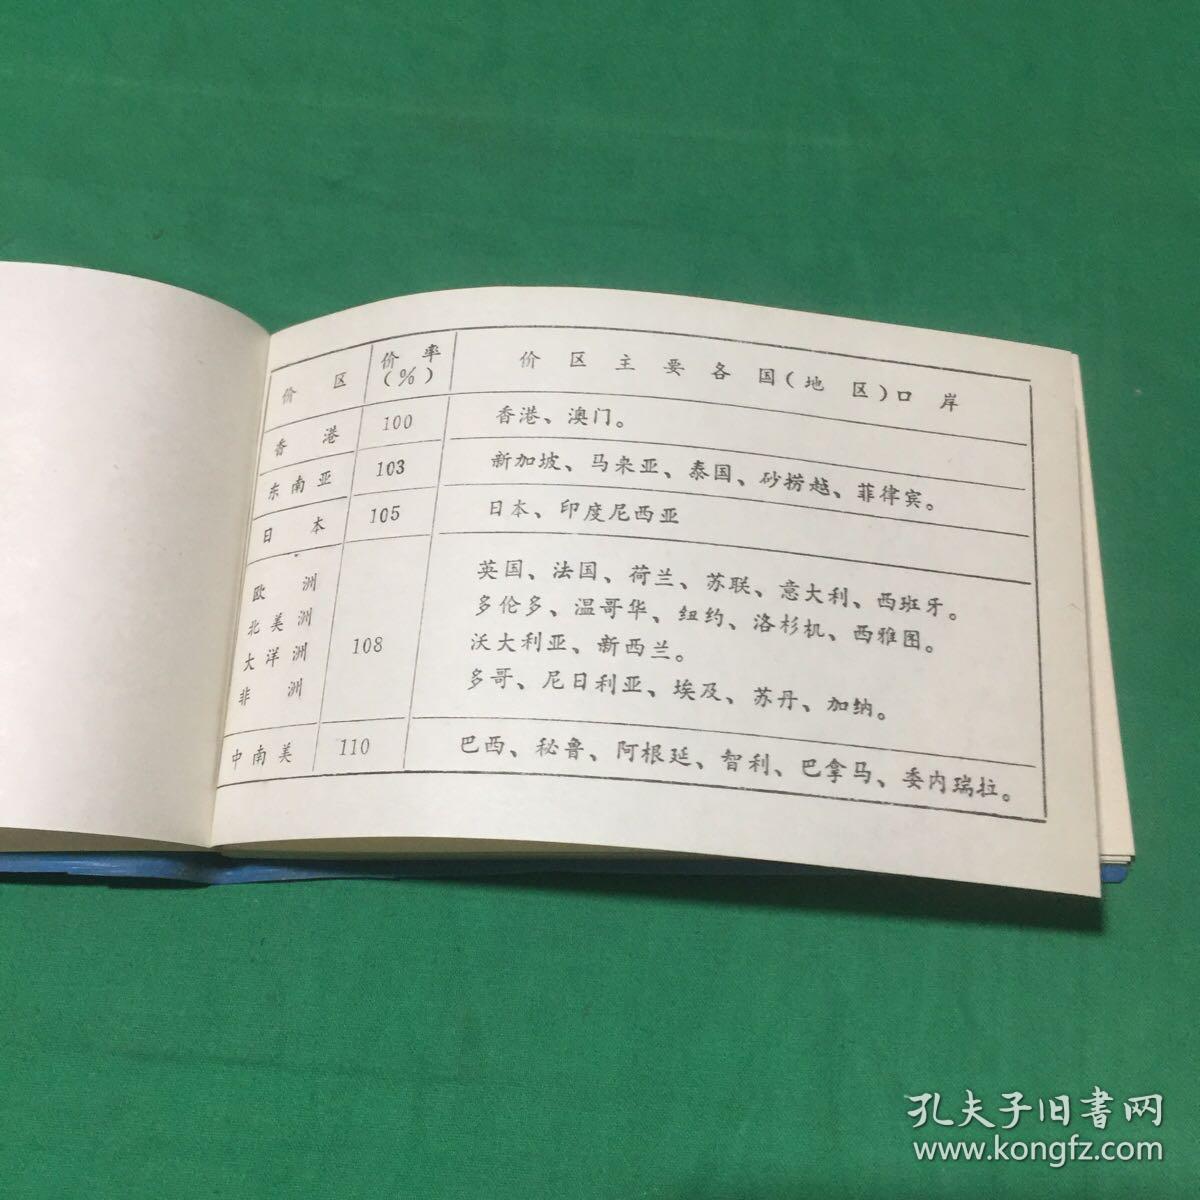 价 区 价 率 (%) 价 区 主 要 各 国(地 区)口 岸
香 港 100 香港、澳门。
东南亚 103 新加坡、马来亚、泰国、砂捞越、菲律宾。
日 本 105 日本、印度尼西亚
欧 洲 英国、法国、荷兰、苏联、意大利、西班牙。
北美洲 多伦多、温哥华、纽约、洛杉机、西雅图。
大洋洲 108 沃大利亚、新西兰。
非 洲 多哥、尼日利亚、埃及、苏丹、加纳。
中南美 110 巴西、秘鲁、阿根廷、智利、巴拿马、委内瑞拉。
孔夫子旧書网
www.kongfz.com